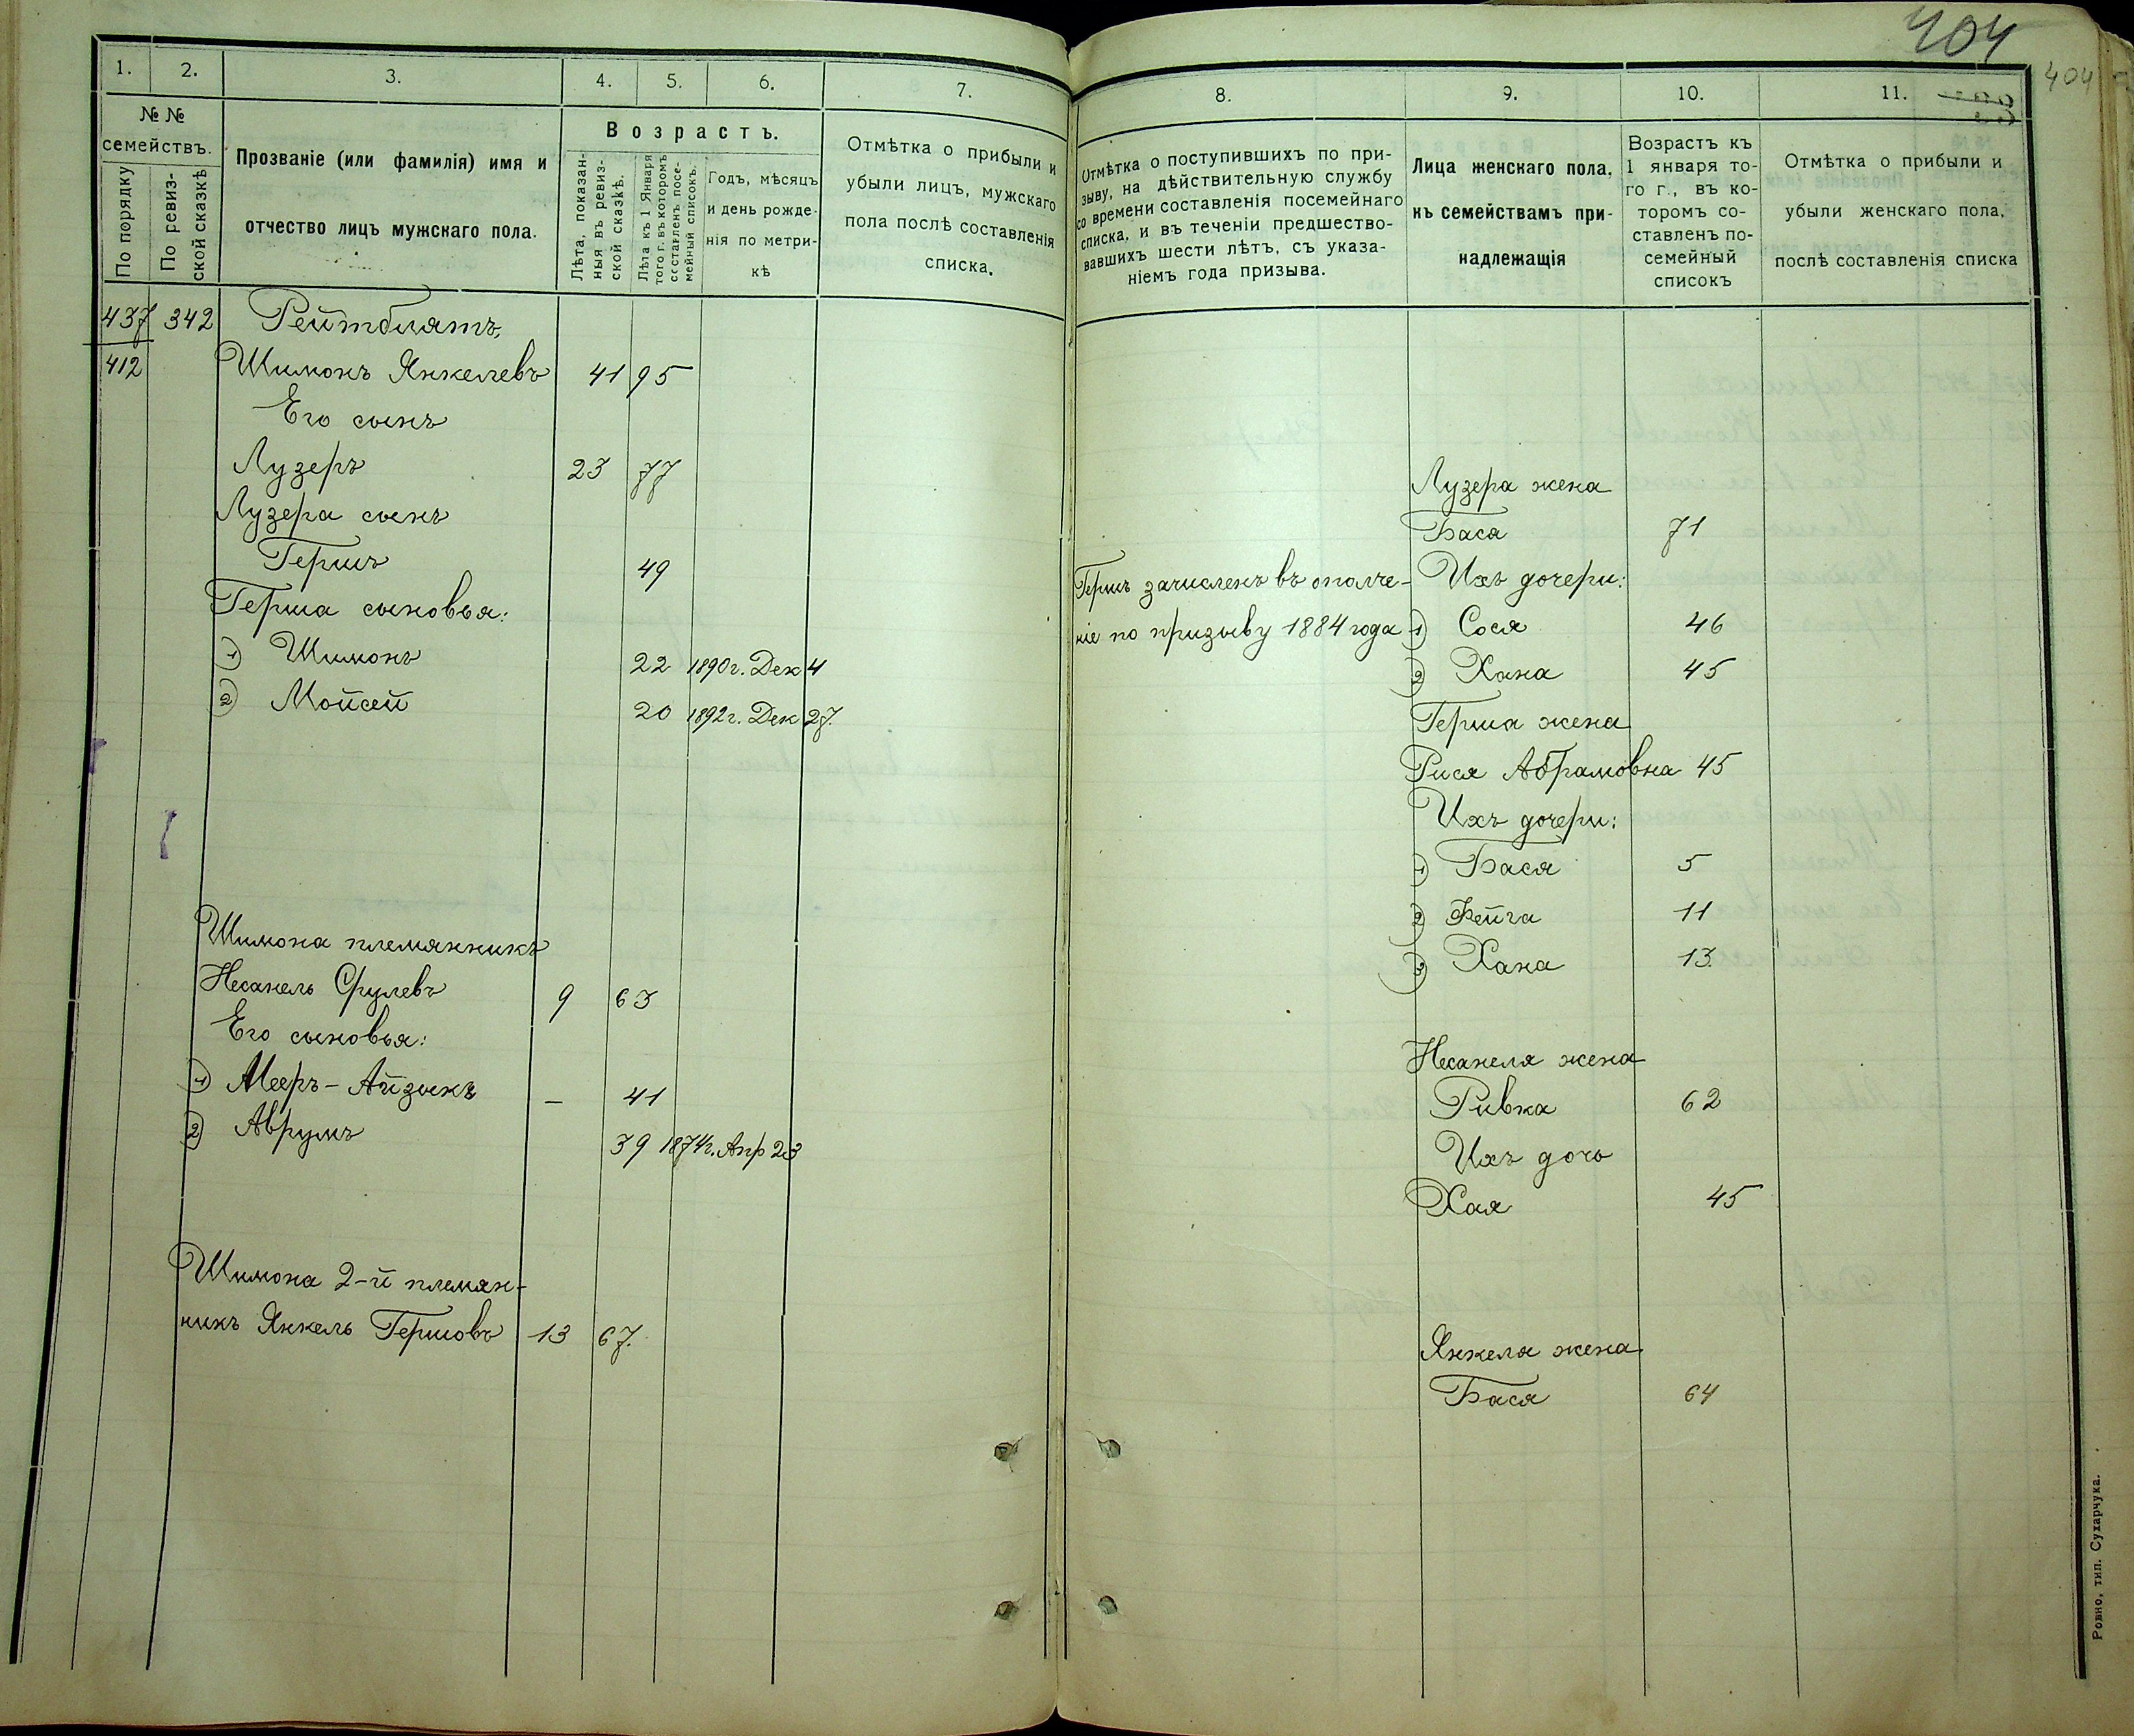 404
404
1. 2. 3. 4. 5. 6. 7.
№ № семействъ.
По порядку
По ревизской сказкѣ
Прозваніе (или фамилія) имя и
отчество лицъ мужскаго пола.
Возрастъ.
Лѣта, показан-
ныя въ ревиз-
ской сказкѣ.
Лѣта къ 1 Января
того г. въ которомъ
составленъ посе-
мейный списокъ.
Годъ, мѣсяцъ
и день рожде-
нія по метри-
кѣ
Отмѣтка о прибыли и
убыли лицъ, мужскаго
пола послѣ составленія
списка.
437 342 Рейтблятъ,
412 Шимонъ Янкелевъ 41 95
Его сынъ
Лузеръ 23 77
Лузера сынъ
Гершъ 49
Герша сыновья:
1) Шимонъ 22 1890г. Дек 4
2) Мойсей 20 1892г. Дек 27.
Шимона племянникъ
Несанель Срулевъ 9 63
Его сыновья:
1) Мееръ-Айзыкъ - 41
2) Аврумъ 39 1874г. Апр 23
Шимона 2-й племян-
никъ Янкель Гершовъ 13 67.
8. 9. 10. 11.
Отмѣтка о поступившихъ по при-
зыву, на дѣйствительную службу
со времени составленія посемейнаго
списка, и въ теченіи предшество-
вавшихъ шести лѣтъ, съ указа-
ніемъ года призыва.
Лица женскаго пола,
къ семействамъ при-
надлежащія
Возрастъ къ
1 января то-
го г., въ ко-
торомъ со-
ставленъ по-
семейный
списокъ
Отмѣтка о прибыли и
убыли женскаго пола,
послѣ составленія списка
Лузера жена
Бася 71
Гершъ зачисленъ въ ополче- Ихъ дочери:
ніе по призыву 1884 года 1) Сося 46
2) Хана 45
Герша жена
Рися Абрамовна 45
Ихъ дочери:
1) Бася 5
2) Фейга 11
3) Хана 13
Несанеля жена
Ривка 62
Ихъ дочь
Хая 45
Янкеля жена
Бася 64
Ровно, тип. Сухарчука.